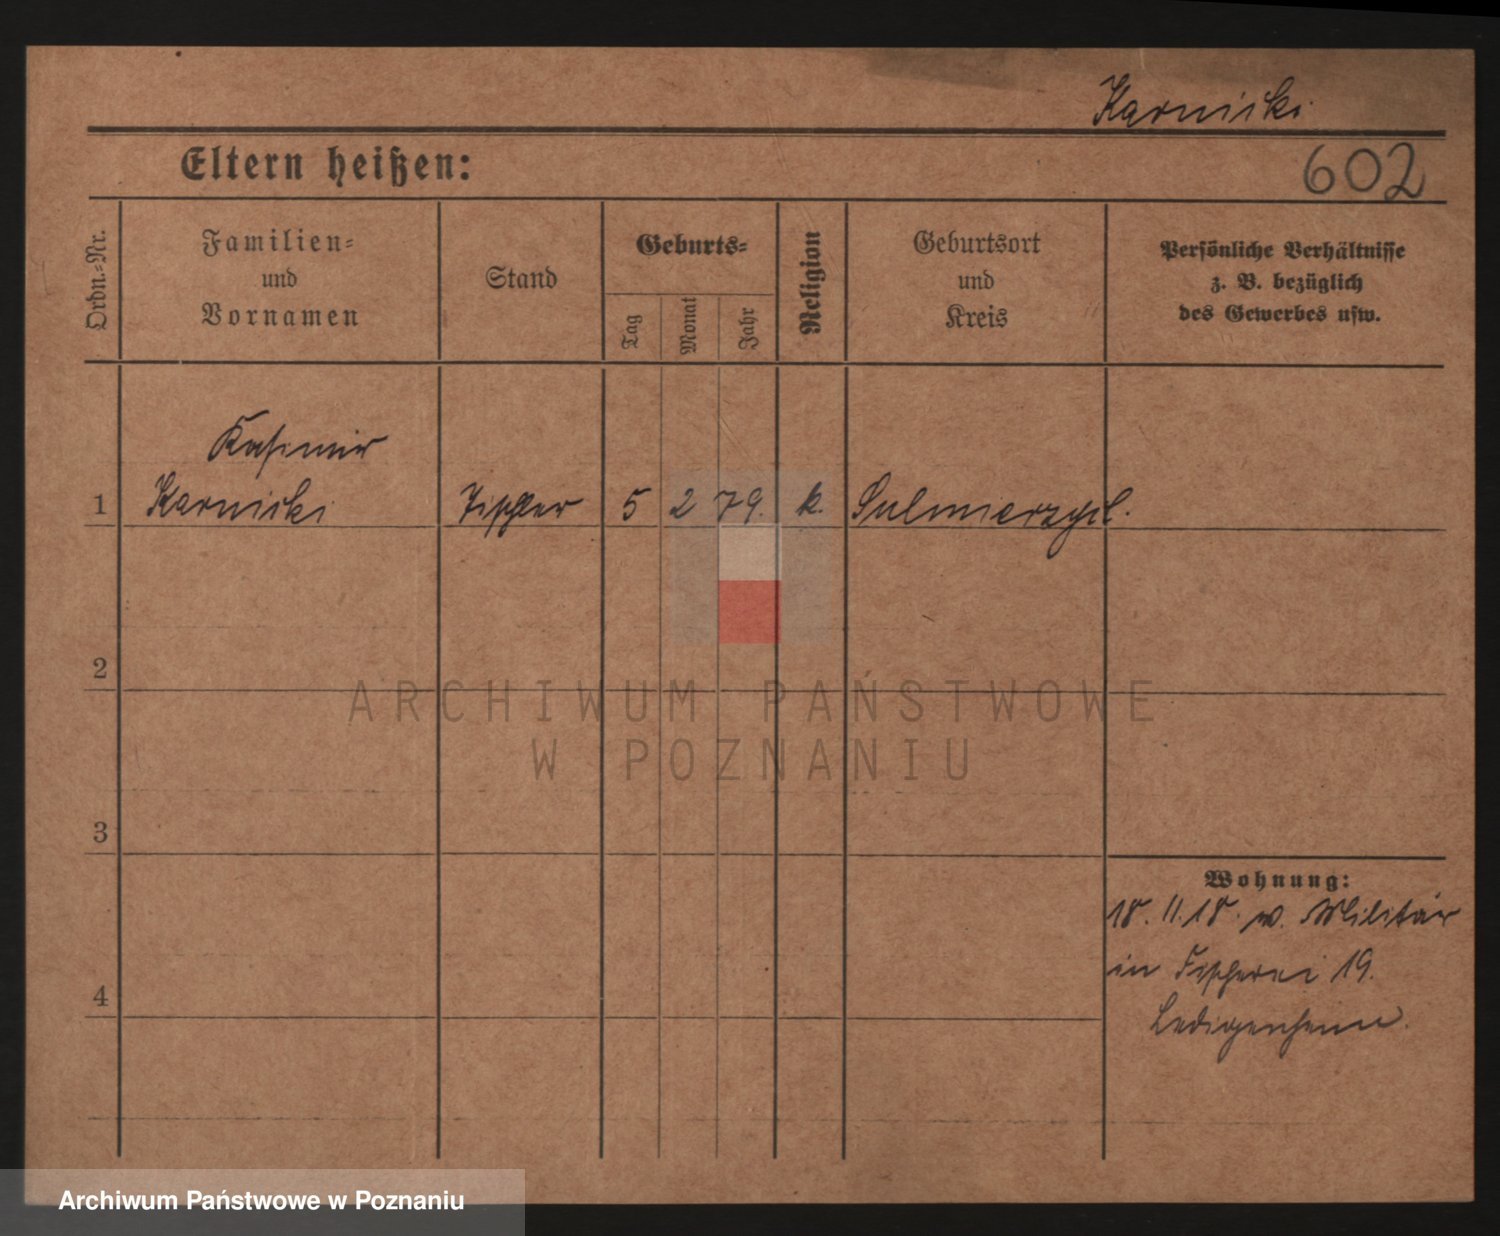 Karnicki
Eltern heißen:
602
Ordn.=Nr.
Familien=
und
Vornamen
Stand
Geburts=
Tag
Monat
Jahr
Religion
Geburtsort
und
Kreis
Persönliche Verhältnisse
z. B. bezüglich
des Gewerbes usw.
Kasimir
1 Karnicki Tischler 5 2 79. k. Sulmierzyc.
2
ARCHIWUM PAŃSTWOWE
W POZNANIU
3
Wohnung:
18. 11. 18. v. Militär
in Fischerei 19.
4
Archiwum Państwowe w Poznaniu